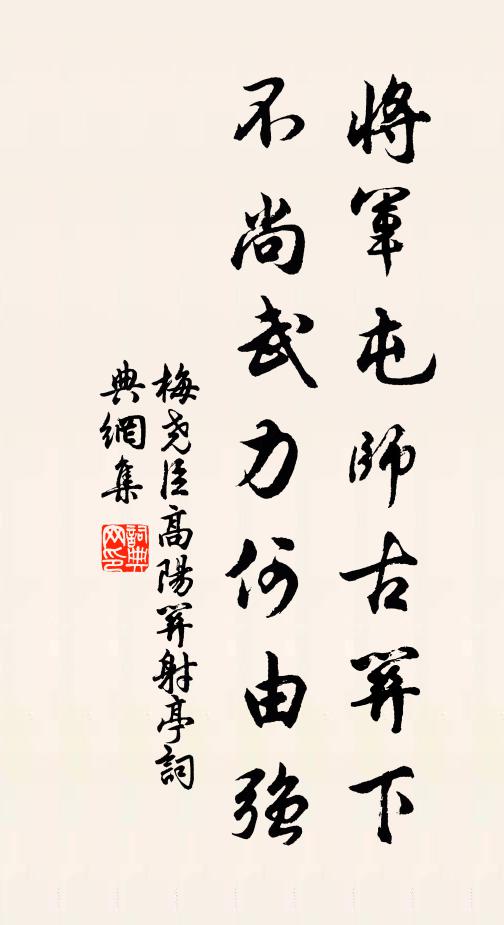 將軍屯師古關下
不尚武力何由強
梅堯臣高陽關射亭詞
典網集
詞典
网印